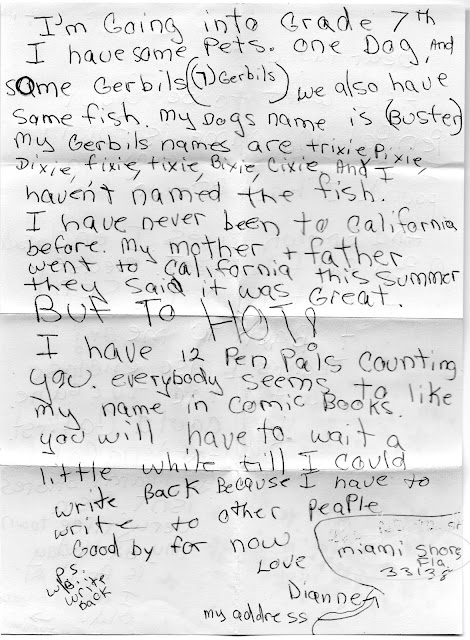 I'm Going into Grade 7th
I have some Pets. One Dog, And
some Gerbils (7) Gerbils) we also have
some fish. my Dogs name is (Buster)
my Gerbils names are trixie, Pixie,
Dixie, fixie, tixie, Bixie, Cixie, And I
haven't named the fish.
I have never been to California
before. my mother + father
went to California this Summer
they said it was Great.
But To HOT!
I have 12 Pen Pals Counting
you. everybody seems to like
my name in Comic Books.
you will have to wait a
little while till I could
write Back Because I have to
write to other people
Good by for now
Love
Dianne
my address
miami Shores
Fla.
33138
P.S.
write
Back